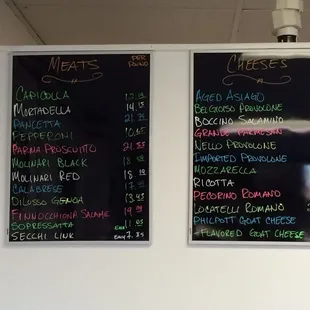 MEATS
PER POUND
CAPICOLLA
MORTADELLA 14.
PANCETTA 21.
PEPPERONI 10.65
PARMA PROSCUITTO 21.
MOLINARI BLACK 18
MOLINARI RED 18
CALABRESE 17
DILUSSO GENOA 13.45
FINNOCCHIONA SALAME 19
SOPRESSATA
SECCHI LINK
CHEESES
AGED ASIAGO
BELGIOISO PROVOLONE
BOCCINO SALAMINO
GRANDE PARMESAN
NELLO PROVOLONE
IMPORTED PROVOLONE
MOZZARELLA
RICOTTA
PECORINO ROMANO
LOCATELLI ROMANO
PHILPOTT GOAT CHEESE
-FLAVORED GOAT CHEESE